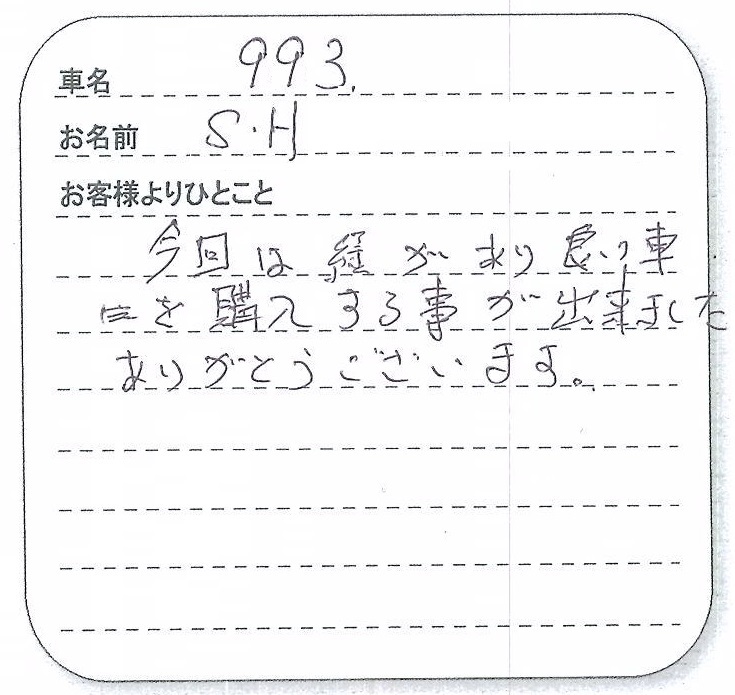 車名 993.
お名前 S・H
お客様よりひとこと
今回は縁があり良い車
を購入する事が出来ました
ありがとうございます。